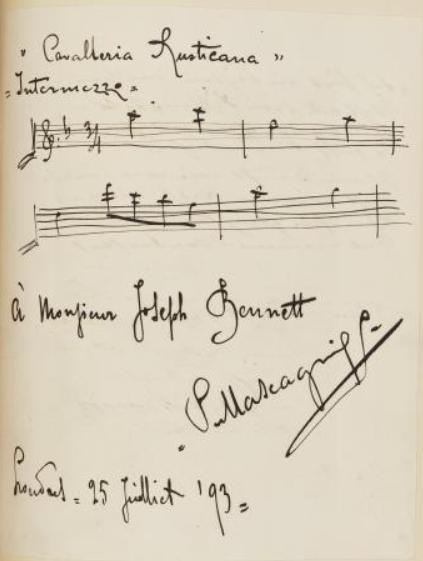 " Cavalleria Rusticana "
= Intermezzo =
3/4
à Monsieur Joseph Bennett
P. Mascagni
Londres = 25 Juillet '93 =